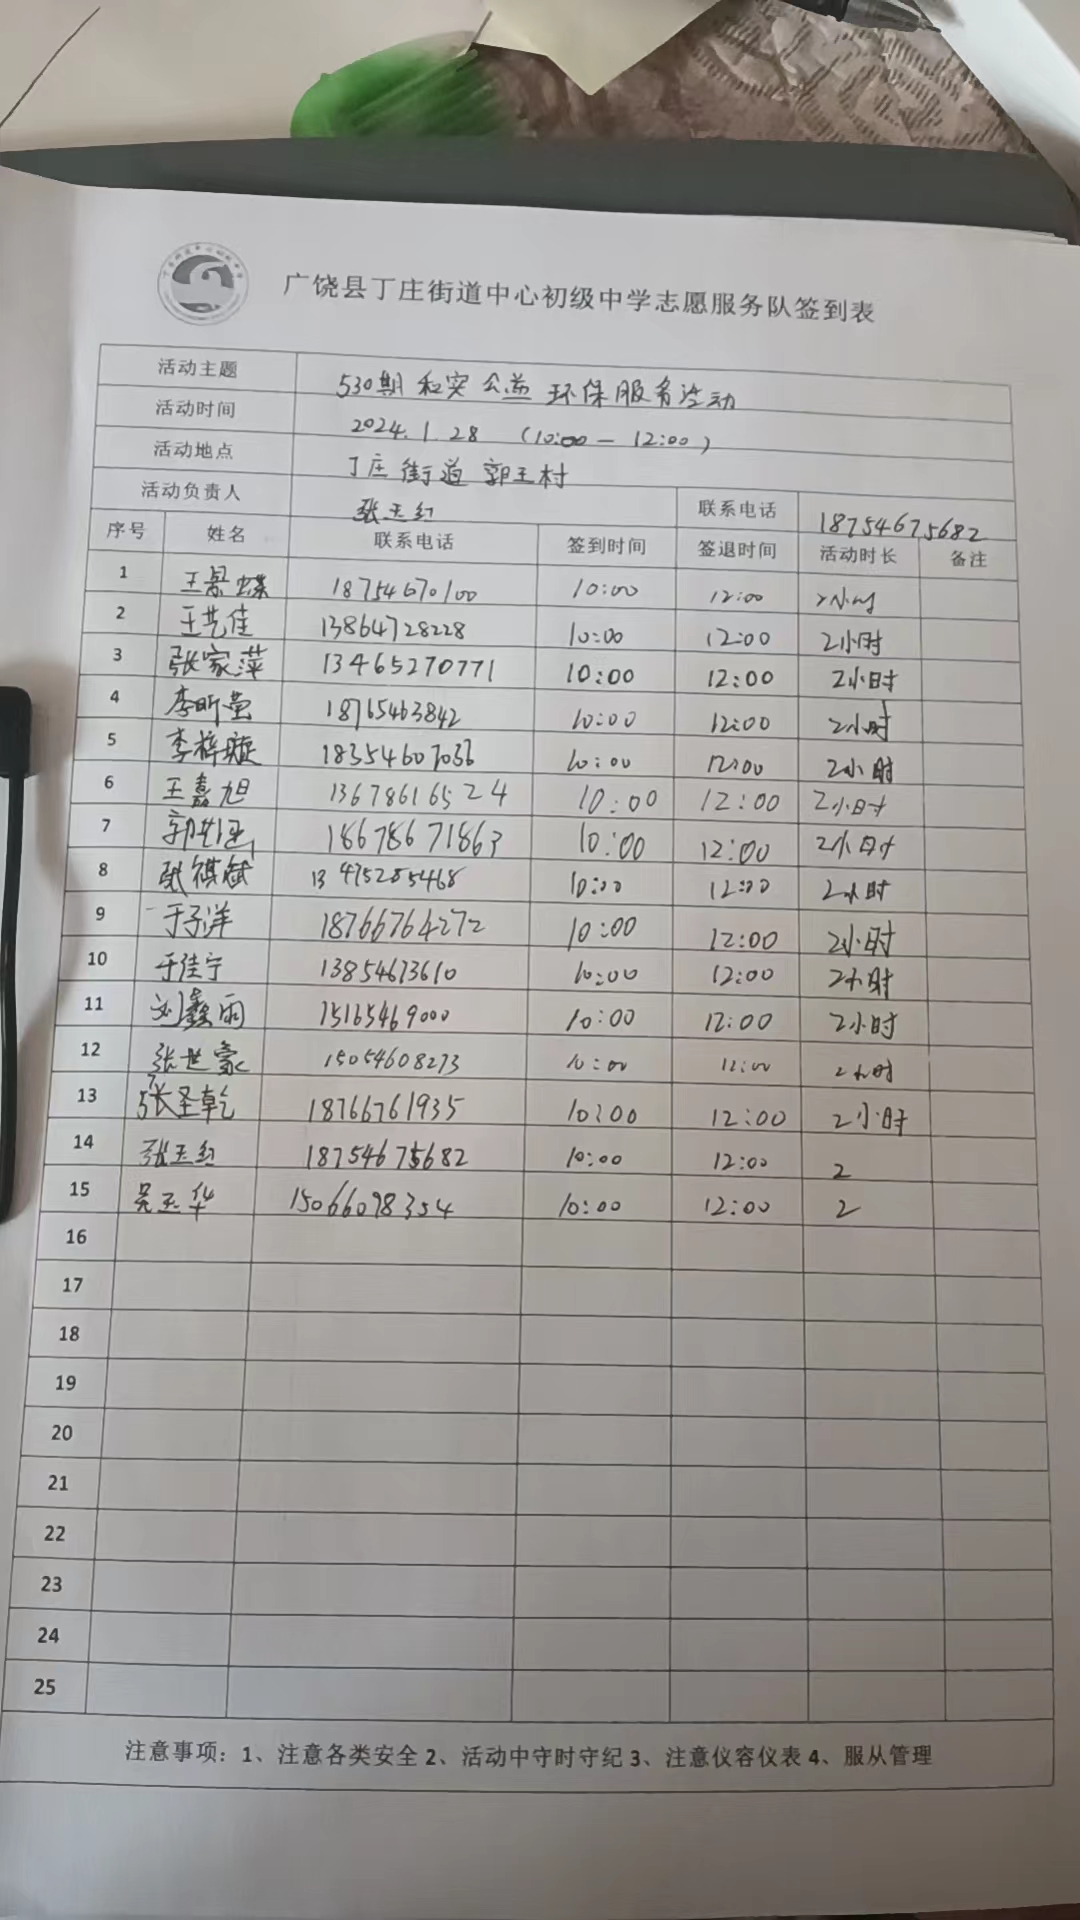 广饶县丁庄街道中心初级中学志愿服务队签到表
活动主题 530期 和实公益 环保服务活动
活动时间 2024.1.28 (10:00—12:00)
活动地点 丁庄街道 郭王村
活动负责人 张玉红 联系电话 18754675682
序号 姓名 联系电话 签到时间 签退时间 活动时长 备注
1 王景蝶 18754670100 10:00 12:00 2小时
2 王艺佳 13864728228 10:00 12:00 2小时
3 张家萍 13465270771 10:00 12:00 2小时
4 李昕萤 18765463842 10:00 12:00 2小时
5 李梓璇 18354607036 10:00 12:00 2小时
6 王嘉旭 13678616524 10:00 12:00 2小时
7 郭 18678671863 10:00 12:00 2小时
8 张祺斌 13475285468 10:00 12:00 2小时
9 于子洋 18766764272 10:00 12:00 2小时
10 于佳宁 13854673610 10:00 12:00 2小时
11 刘鑫雨 15165469000 10:00 12:00 2小时
12 张世豪 15054608273 10:00 12:00 2小时
13 张圣乾 18766761935 10:00 12:00 2小时
14 张玉红 18754675682 10:00 12:00 2
15 吴玉华 15066098354 10:00 12:00 2
16
17
18
19
20
21
22
23
24
25
注意事项：1、注意各类安全 2、活动中守时守纪 3、注意仪容仪表 4、服从管理